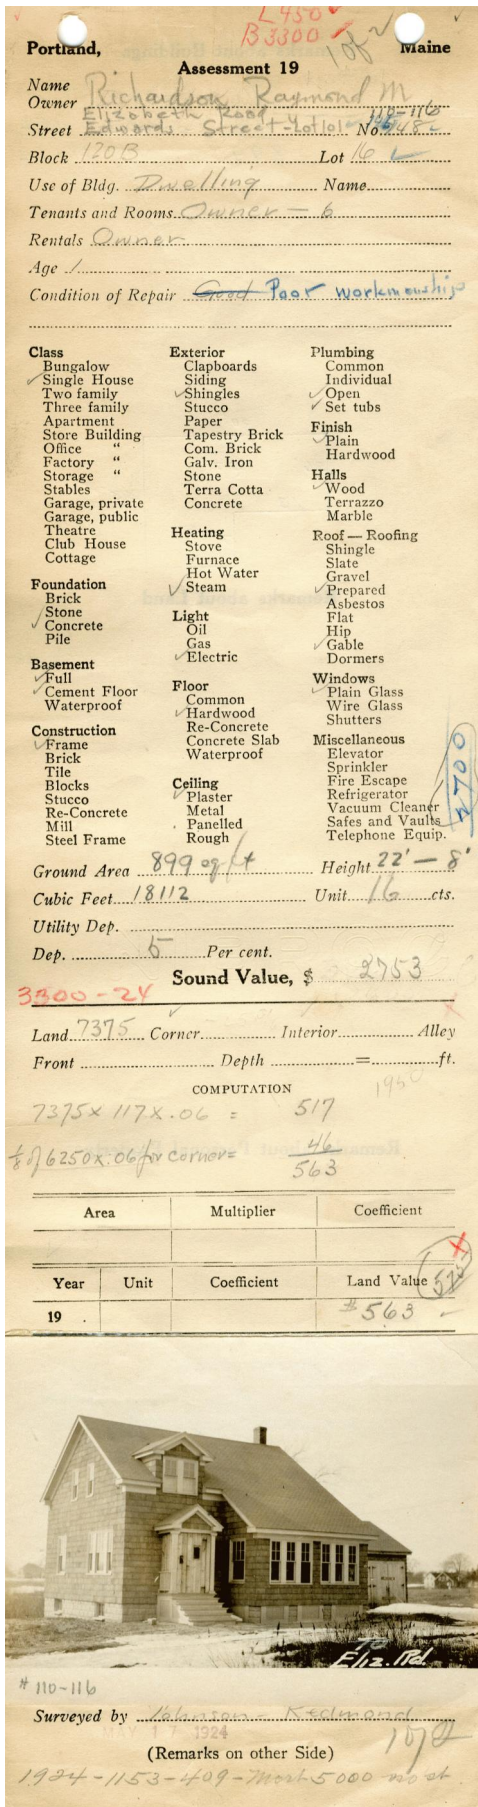 L450
B3300
1 of 2
Portland, Maine
Assessment 19
Name
Owner Richardson Raymond M
Elizabeth Road 110-116
Street Edwards Street-Lot 101 No. 48
Block 120B Lot 16
Use of Bldg. Dwelling Name
Tenants and Rooms Owner - 6
Rentals Owner
Age 1
Condition of Repair Good Poor workmanship
Class
Bungalow
Single House
Two family
Three family
Apartment
Store Building
Office "
Factory "
Storage "
Stables
Garage, private
Garage, public
Theatre
Club House
Cottage
Foundation
Brick
Stone
Concrete
Pile
Basement
Full
Cement Floor
Waterproof
Construction
Frame
Brick
Tile
Blocks
Stucco
Re-Concrete
Mill
Steel Frame
Exterior
Clapboards
Siding
Shingles
Stucco
Paper
Tapestry Brick
Com. Brick
Galv. Iron
Stone
Terra Cotta
Concrete
Heating
Stove
Furnace
Hot Water
Steam
Light
Oil
Gas
Electric
Floor
Common
Hardwood
Re-Concrete
Concrete Slab
Waterproof
Ceiling
Plaster
Metal
Panelled
Rough
Plumbing
Common
Individual
Open
Set tubs
Finish
Plain
Hardwood
Halls
Wood
Terrazzo
Marble
Roof — Roofing
Shingle
Slate
Gravel
Prepared
Asbestos
Flat
Hip
Gable
Dormers
Windows
Plain Glass
Wire Glass
Shutters
Miscellaneous
Elevator
Sprinkler
Fire Escape
Refrigerator
Vacuum Cleaner
Safes and Vaults
Telephone Equip.
2700
Ground Area 899 sq ft Height 22' - 8'
Cubic Feet 18112 Unit 16 cts.
Utility Dep.
Dep. 5 Per cent.
Sound Value, $ 2753
3300-24
Land 7375 Corner Interior Alley
Front Depth = ft.
COMPUTATION
1950
7375 x 117 x .06 = 517
1/8 of 6250 x .06 for corner = 46
563
Area Multiplier Coefficient
Year Unit Coefficient Land Value
19 . $563
To
Eliz. Rd.
# 110-116
Surveyed by Johnson - Redmond
MAY 17 1924
(Remarks on other Side)
1924-1153-409-Mort 5000